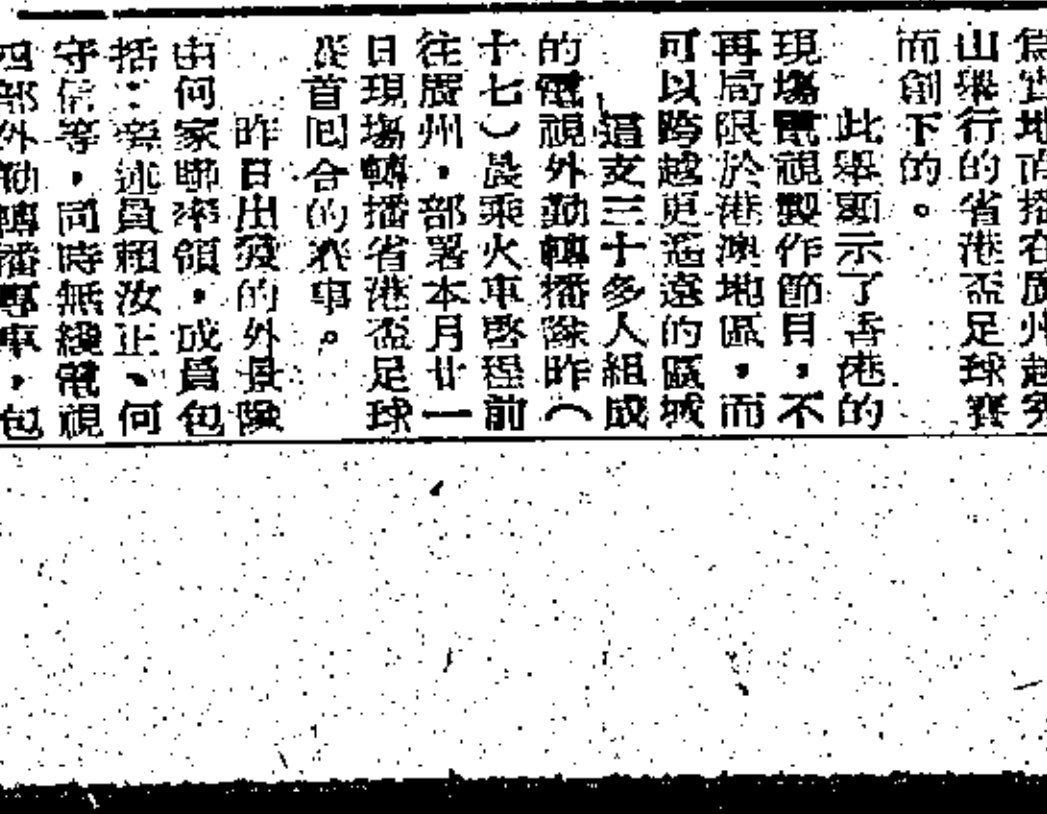 爲實地直播在廣州越秀
山舉行的省港盃足球賽
而創下的。
此舉顯示了香港的
現塲電視製作節目，不
再局限於港澳地區，而
可以跨越更遙遠的區域
這支三十多人組成
的電視外勤轉播隊昨（
十七）晨乘火車啓程前
往廣州，部署本月廿一
日現塲轉播省港盃足球
賽首囘合的賽事。
昨日出發的外景隊
由何家聯率領，成員包
括：旁述員賴汝正、何
守信等，同時無綫電視
四部外勤轉播專車，包